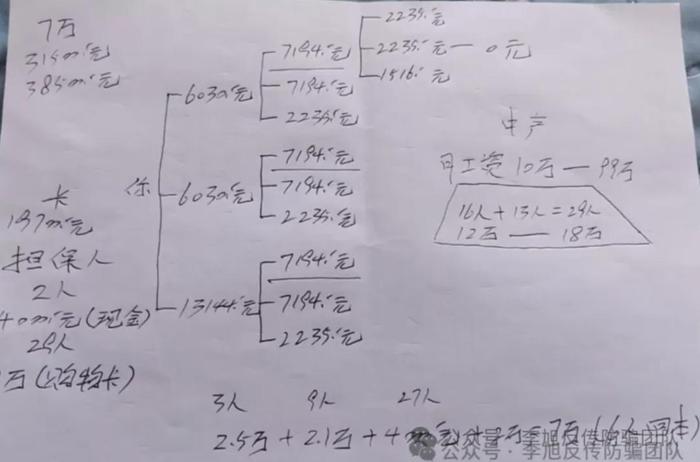 7万
315m元
385m元
卡
197m元
担保人
2人
40m元(现金)
29人
万(购物卡)
你
6030元
6030元
13144元
7194元
7194元
2235元
7194元
7194元
2235元
7194元
7194元
2235元
2235元
2235元 — 0元
1516元
中产
月工资10万 — 99万
16人+13人=29人
12万 — 18万
3人 9人 27人
2.5万+2.1万+4m元
=7万(
公众号·李旭反传防骗团队
公众号·李旭反传防骗团队